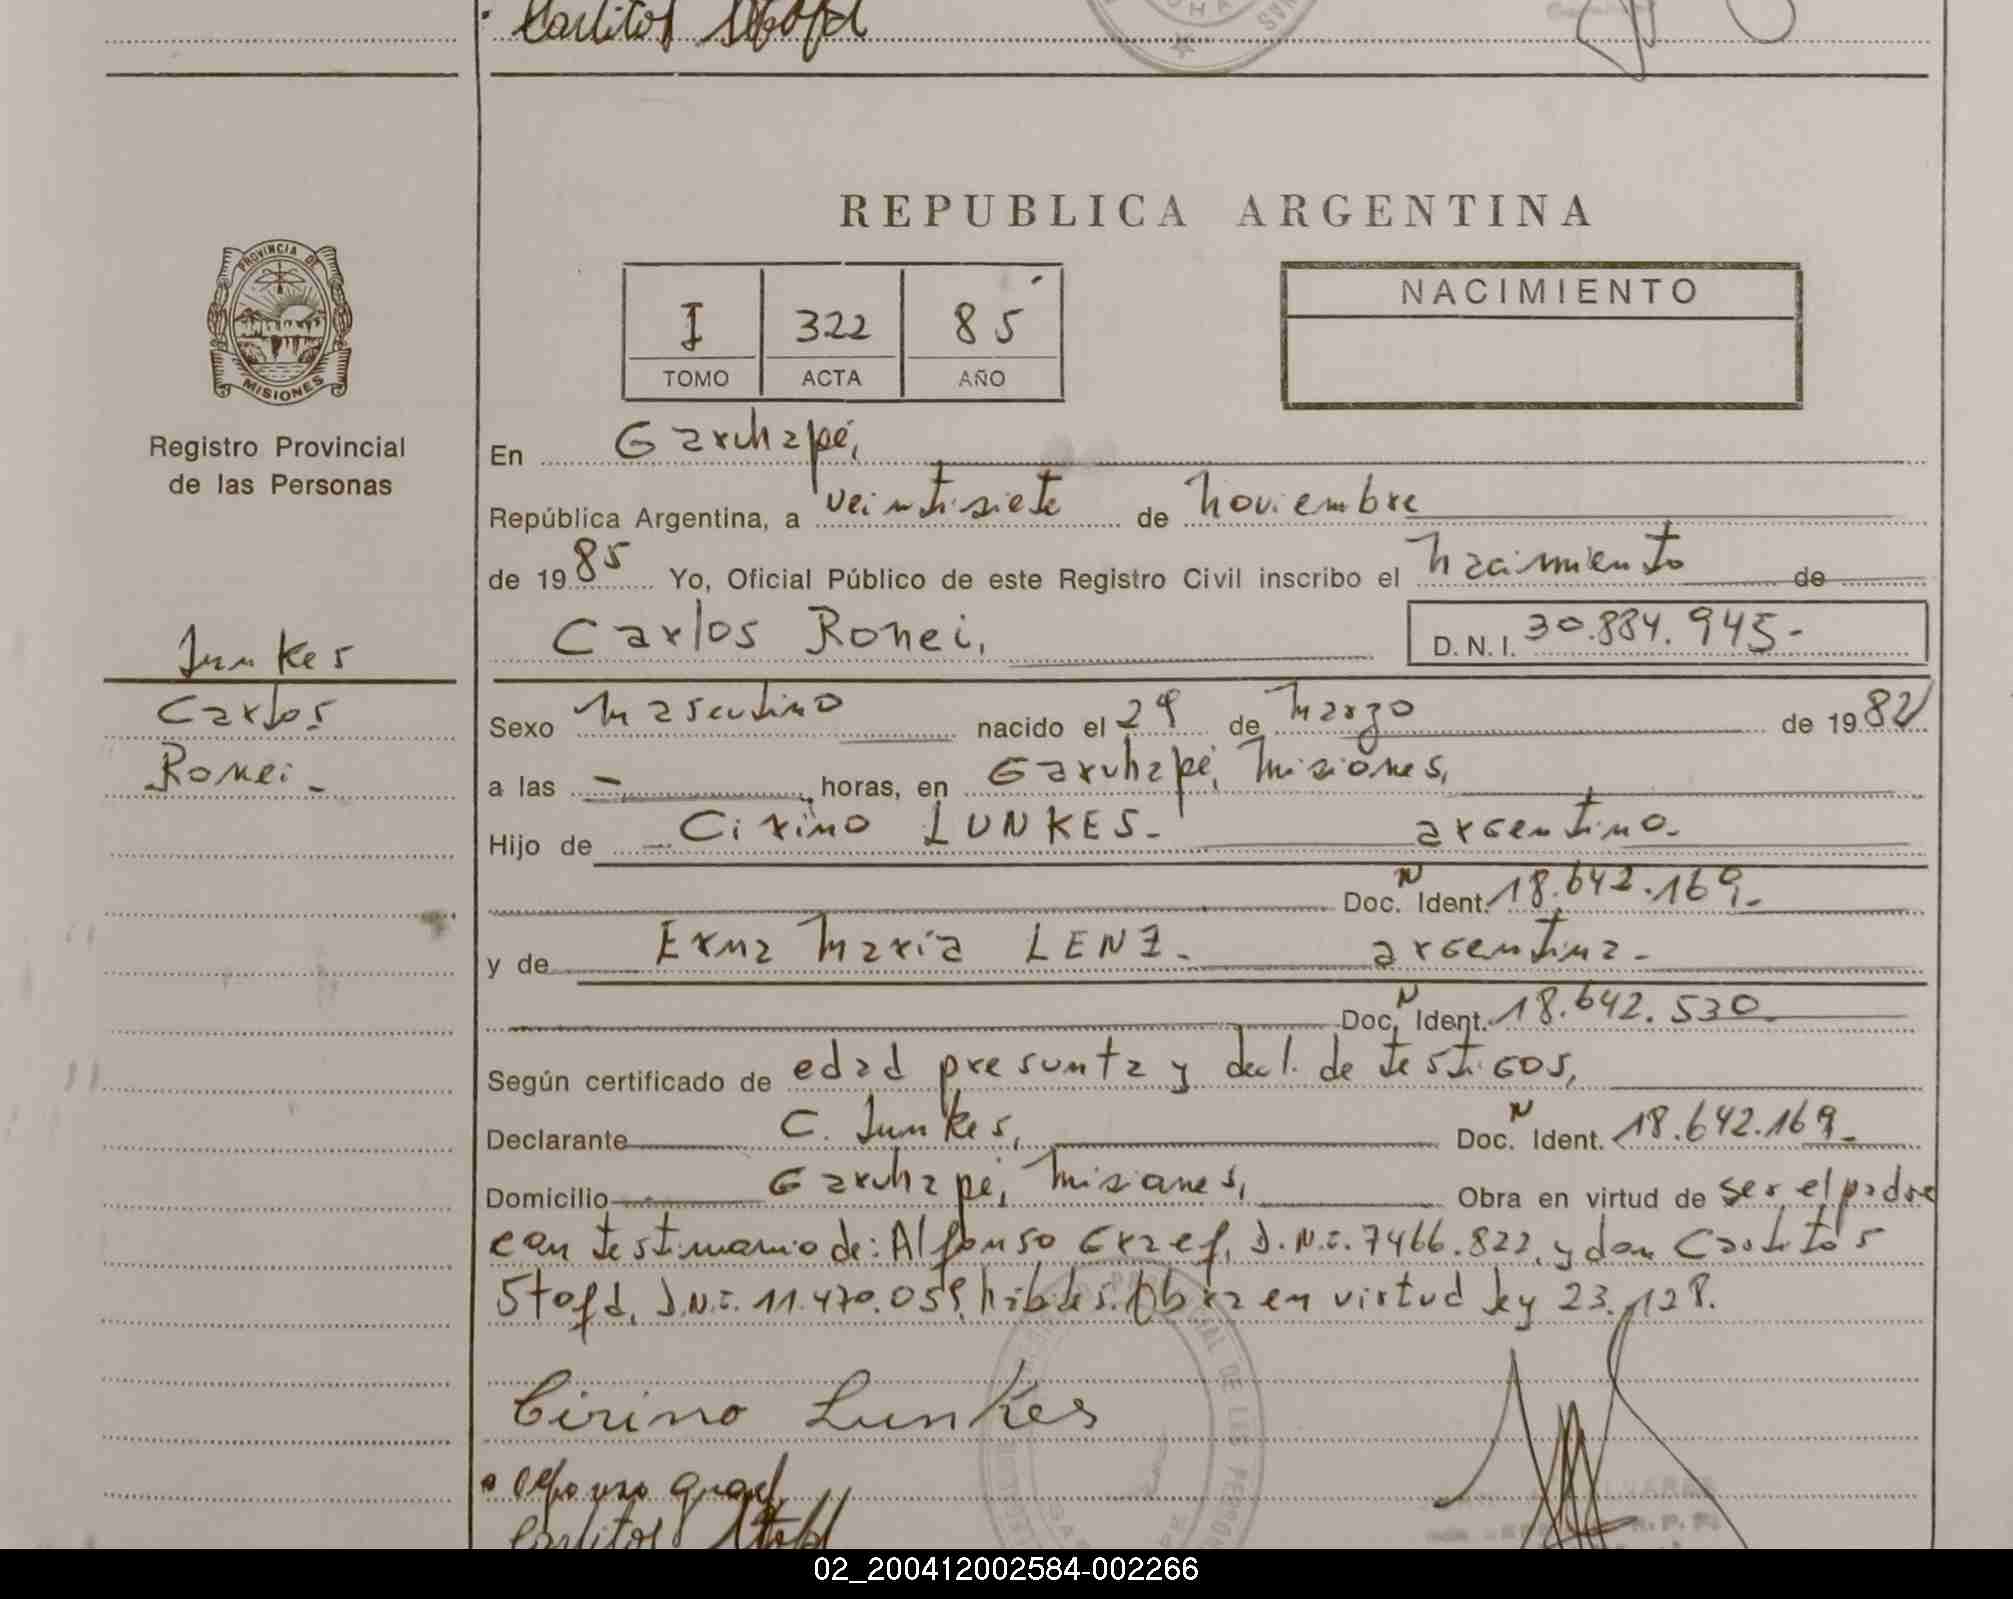 Carlitos Stofd
REPUBLICA ARGENTINA
PROVINCIA DE
MISIONES
Registro Provincial
de las Personas
I 322 85
TOMO ACTA AÑO
NACIMIENTO
En Garuhapé,
República Argentina, a veintisiete de noviembre
de 1985 Yo, Oficial Público de este Registro Civil inscribo el nacimiento de
Carlos Ronei,
D.N.I. 30.884.945-
Lunkes
Carlos
Ronei -
Sexo masculino nacido el 29 de marzo de 1982
a las - horas, en Garuhapé, Misiones,
Hijo de Cirino LUNKES- argentino-
Doc. N Ident. 18.642.169-
y de Erna Maria LENZ- argentina-
Doc. N Ident. 18.642.530-
Según certificado de edad presunta y decl. de testigos,
Declarante C. Lunkes, Doc. N Ident. 18.642.169-
Domicilio Garuhapé, Misiones, Obra en virtud de ser el padre
con testimonio de: Alfonso Graef, D.N.I. 7466.822, y don Carlitos
Stofd, D.N.I. 11.470.059, hábiles. Obra en virtud ley 23.128.
Cirino Lunkes
Carlitos Stofd
02_200412002584-002266